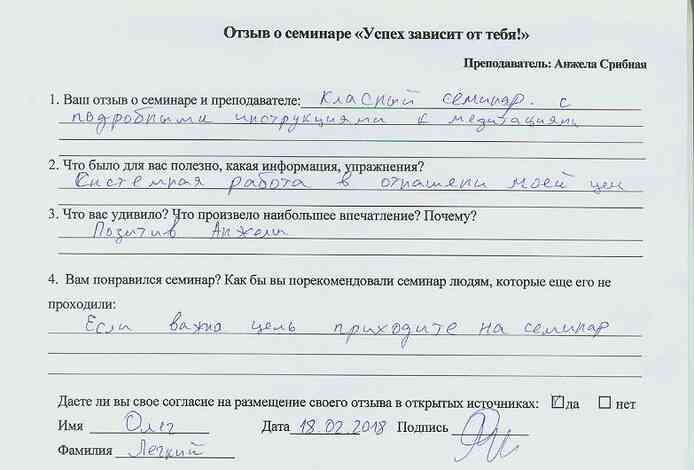 Отзыв о семинаре «Успех зависит от тебя!»
Преподаватель: Анжела Срибная
1. Ваш отзыв о семинаре и преподавателе: Класный семинар. с
подробными инструкциями к медитациям
2. Что было для вас полезно, какая информация, упражнения?
Системная работа в отнашени моей цели
3. Что вас удивило? Что произвело наибольшее впечатление? Почему?
Позитив Анжели
4. Вам понравился семинар? Как бы вы порекомендовали семинар людям, которые еще его не
проходили:
Если важна цель приходите на семинар
Даете ли вы свое согласие на размещение своего отзыва в открытых источниках: да нет
Имя Олег Дата 18.02.2018 Подпись
Фамилия Легкий